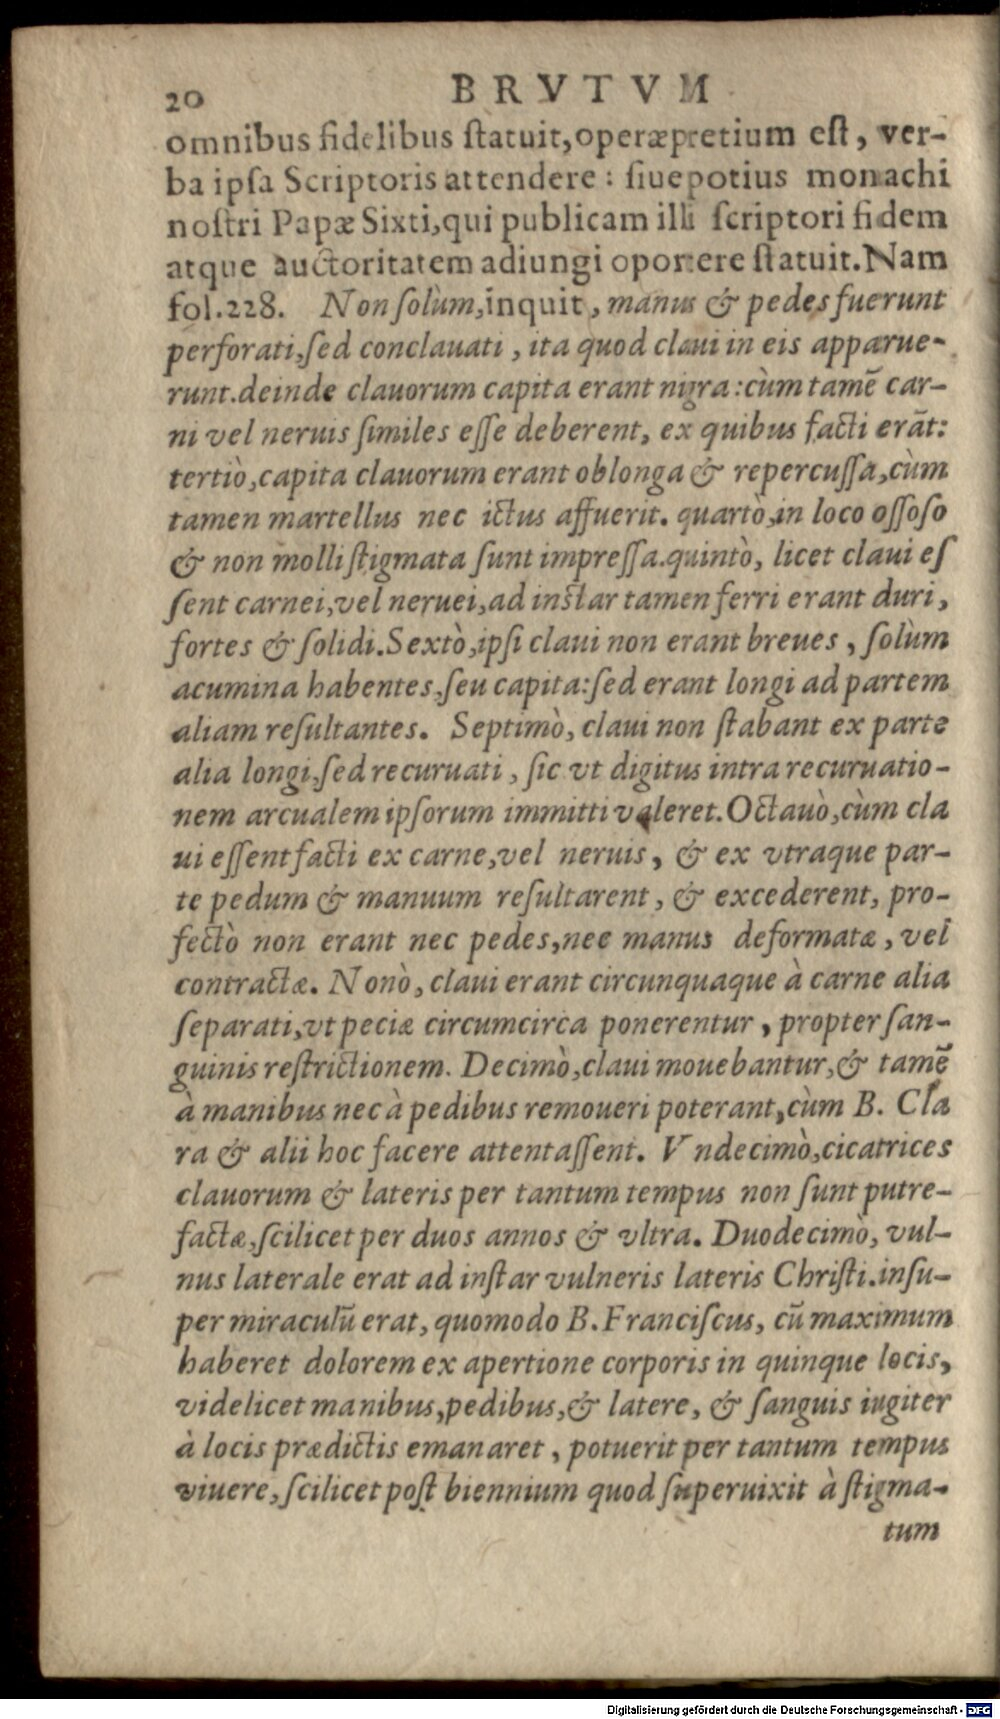 20 BRVTVM
omnibus fidelibus ſtatuit,operæpretium eſt, ver-
ba ipſa Scriptoris attendere : ſiuepotius monachi
noſtri Papæ Sixti,qui publicam illi ſcriptori fidem
atque auctoritatem adiungi oportere ſtatuit. Nam
fol.228. Non ſolùm,inquit, manus & pedes fuerunt
perforati,ſed conclauati, ita quod claui in eis apparue-
runt.deinde clauorum capita erant nigra:cùm tamē car-
ni vel neruis ſimiles eſſe deberent, ex quibus facti erāt:
tertiò,capita clauorum erant oblonga & repercuſſa,cùm
tamen martellus nec ictus affuerit. quartò,in loco oſſoſo
& non molli ſtigmata ſunt impreſſa.quintò, licet claui eſ
ſent carnei,vel neruei,ad inſtar tamen ferri erant duri,
fortes & ſolidi.Sextò,ipſi claui non erant breues, ſolùm
acumina habentes,ſeu capita:ſed erant longi ad partem
aliam reſultantes. Septimò, claui non ſtabant ex parte
alia longi,ſed recuruati, ſic vt digitus intra recuruatio-
nem arcualem ipſorum immitti valeret.Octauò,cùm cla
ui eſſent facti ex carne,vel neruis, & ex vtraque par-
te pedum & manuum reſultarent, & excederent, pro-
fectò non erant nec pedes,nec manus deformatæ, vel
contractæ. Nonò, claui erant circunquaque à carne alia
ſeparati,vt peciæ circumcirca ponerentur, propter ſan-
guinis reſtrictionem. Decimò,claui mouebantur,& tamē
à manibus nec à pedibus remoueri poterant,cùm B. Cla
ra & alii hoc facere attentaſſent. Vndecimò,cicatrices
clauorum & lateris per tantum tempus non ſunt putre-
factæ,ſcilicet per duos annos & vltra. Duodecimò, vul-
nus laterale erat ad inſtar vulneris lateris Chriſti.inſu-
per miraculū erat, quomodo B.Franciſcus, cū maximum
haberet dolorem ex apertione corporis in quinque locis,
videlicet manibus,pedibus,& latere, & ſanguis iugiter
à locis prædictis emanaret, potuerit per tantum tempus
viuere,ſcilicet poſt biennium quod ſuperuixit à ſtigma-
tum
Digitalisierung gefördert durch die Deutsche Forschungsgemeinschaft - DFG